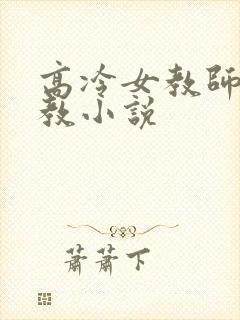 高冷女教師
教小説
蕭蕭下